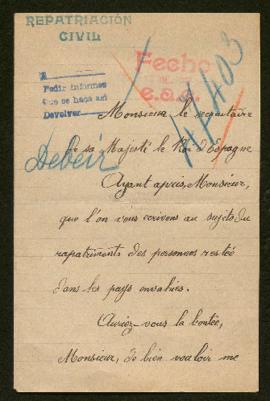 REPATRIACIÓN
CIVIL
Fecho
e.a.c.
Pedir informes
que se haga así
Devolver
Monsieur le secrétaire
de sa Majesté le Roi d'Espagne
Ayant appris, Monsieur,
que l'on vous écrivais au sujets du
rapatriments des personnes restée
dans les pays envahies.
Auriez-vous la bontée,
Monsieur, de bien vouloir me